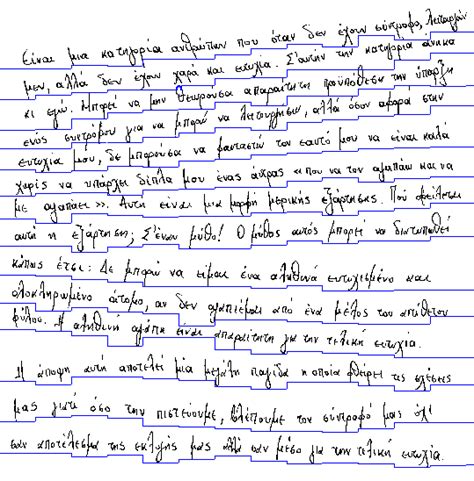 Είναι μια κατηγορία ανθρώπων που όταν δεν έχουν σύντροφο, λειτουργούν
μεν, αλλά δεν έχουν χαρά και ευτυχία. Σ'αυτήν την κατηγορία άνηκα
κι εγώ. Μπορεί να μην θεωρούσα απαραίτητη προϋπόθεση την ύπαρξη
ενός συντρόφου για να μπορώ να λειτουργήσω, αλλά όσον αφορά στην
ευτυχία μου, δε μπορούσα να φανταστώ τον εαυτό μου να είναι καλά
χωρίς να υπάρχει δίπλα μου ένας άντρας «που να τον αγαπάω και να
με αγαπάει». Αυτή είναι μια μορφή μερικής εξάρτησης. Πού οφείλεται
αυτή η εξάρτηση; Σ'έναν μύθο! Ο μύθος αυτός μπορεί να διατυπωθεί
κάπως έτσι: Δε μπορώ να είμαι ένα αληθινά ευτυχισμένο και
ολοκληρωμένο άτομο, αν δεν αγαπιέμαι από ένα μέλος του απέθετου
φύλου. Η αληθινή αγάπη είναι απαραίτητη για την τελική ευτυχία.
Η άποψη αυτή αποτελεί μία μεγάλη παγίδα η οποία φθείρει τις σχέσεις
μας γιατί όσο την πιστεύουμε, βλέπουμε τον σύντροφό μας όχι
σαν αποτέλεσμα της εκλογής μας αλλά σαν μέσο για την τελική ευτυχία.